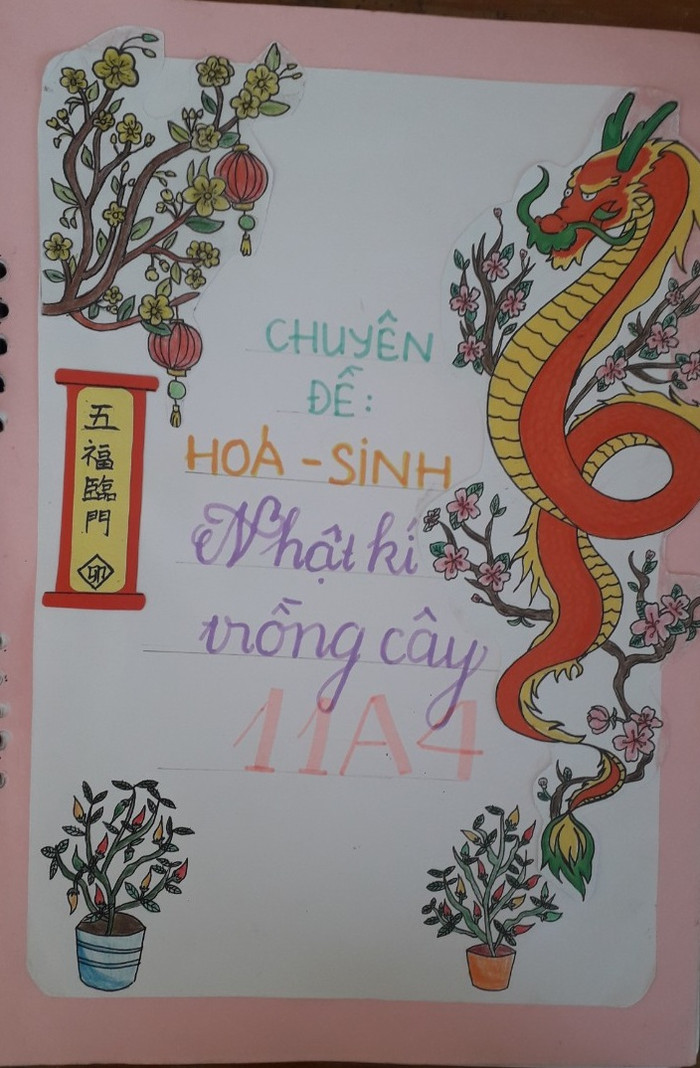 CHUYÊN
ĐỀ:
HOÁ - SINH
Nhật kí
trồng cây
11A4
五福臨門